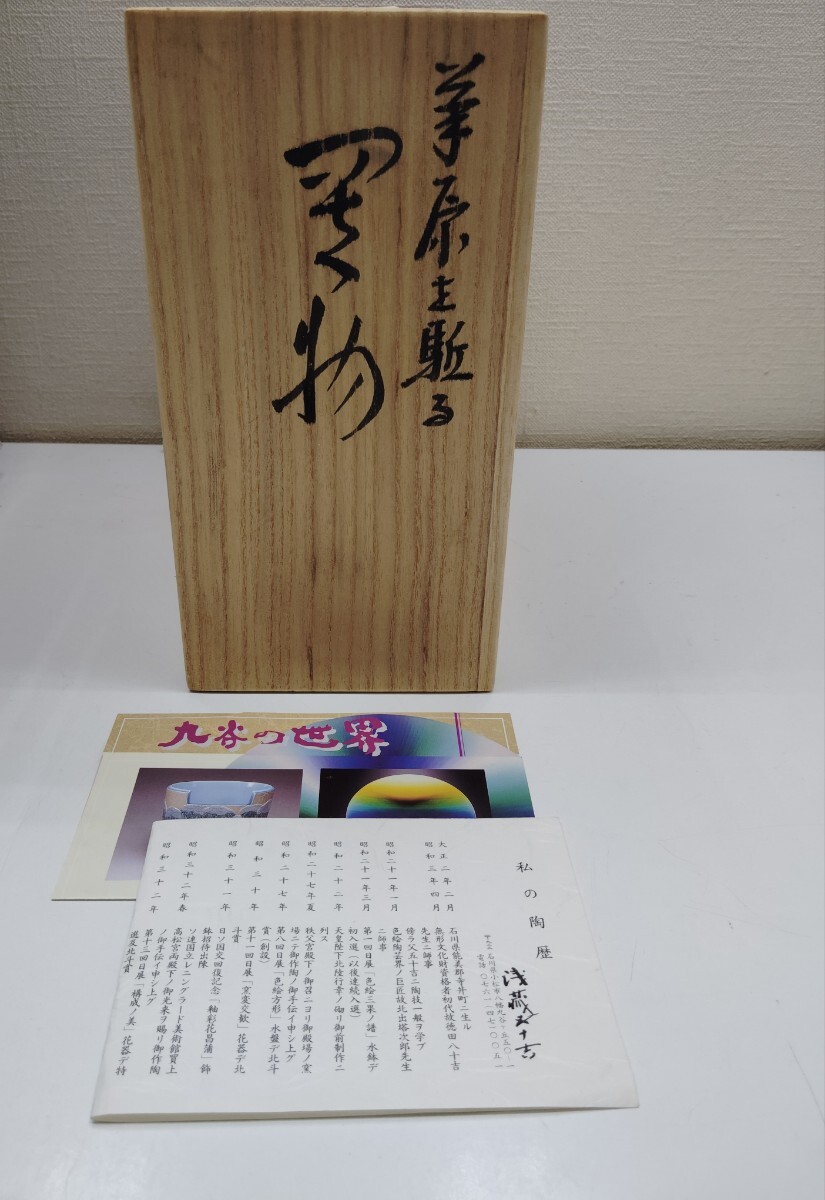 草原を駈る
置物
九谷の世界
私の陶歴
石川県小松市八幡九谷ヶ丘五〇ノ一
電話〇七六一-四七-〇〇五一
浅蔵五十吉
大正二年二月 石川県能美郡寺井町ニ生ル
昭和三年四月 無形文化財資格者初代故徳田八十吉
先生ニ師事
傍ラ父五十吉ニ陶技一般ヲ学ブ
昭和二十一年一月 色絵陶芸界ノ巨匠故北出塔次郎先生
ニ師事
昭和二十一年三月 第一回日展「色絵三果ノ譜」水鉢デ
初入選(以後連続入選)
昭和二十二年 天皇陛下北陸行幸ノ砌リ御前制作ニ
列ス
昭和二十七年夏 秩父宮殿下ノ御召ニヨリ御殿場ノ窯
場ニテ御作陶ノ御手伝イ申シ上グ
昭和二十七年 第八回日展「色絵方形」水盤デ北斗
賞(創設)
昭和三十年 第十一回日展「窯変交歓」花器デ北
斗賞
昭和三十一年 日ソ国交回復記念「釉彩花菖蒲」飾
鉢招待出陳
ソ連国立レニングラード美術館買上
昭和三十二年春 高松宮両殿下ノ御光来ヲ賜リ御作陶
ノ御手伝イ申シ上グ
昭和三十二年 第十三回日展「構成ノ美」花器デ特
選及北斗賞